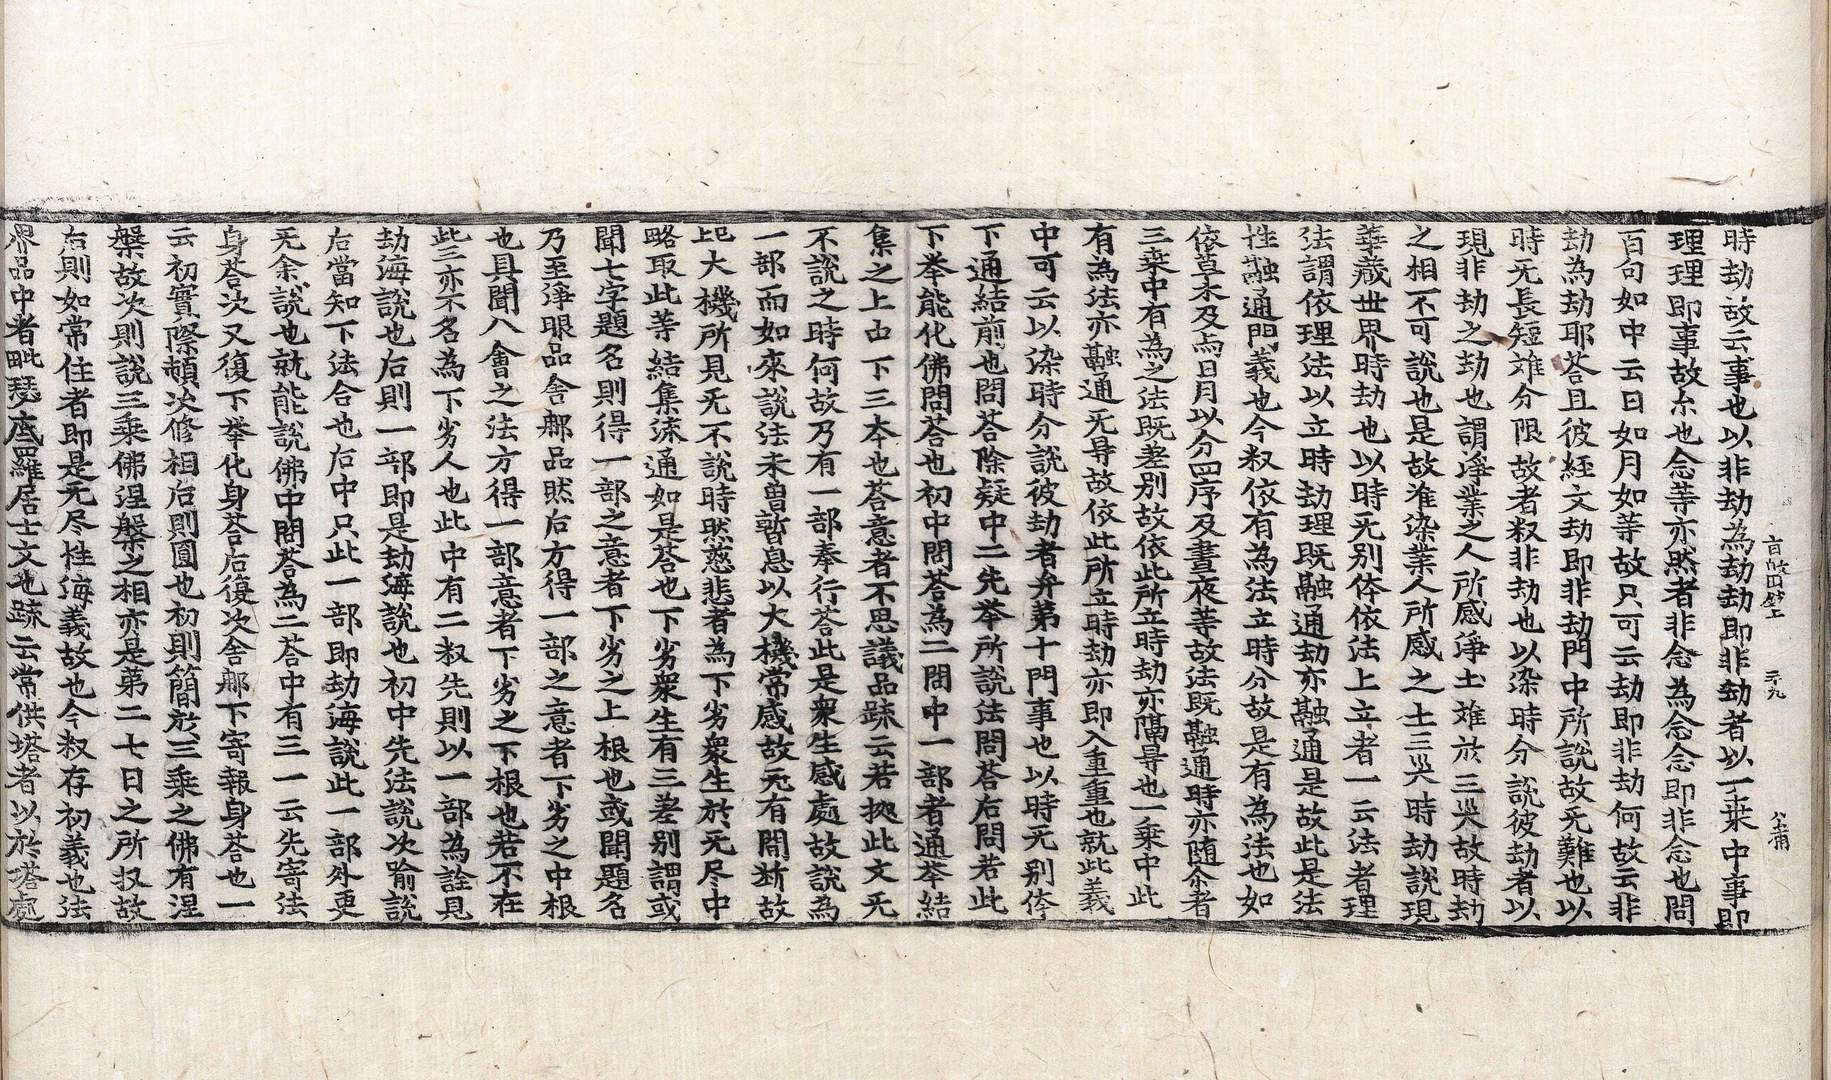 時劫故云事也以非劫為劫劫即非劫者以一乘中事即
理理即事故尒也念等亦然者非念為念念即非念也問
百句如中云日如月如等故只可云劫即非劫何故云非
劫為劫耶荅且彼経文劫即非劫門中所說故无難也以
時无長短难分限故者叙非劫也以染時分說彼劫者以
現非劫之劫也謂淨業之人所感淨土难於三灾故時劫
之相不可說也是故准染業人所感之土三灾時劫說現
華蔵世界時劫也以時无别体依法上立者一云法者理
法謂依理法以立時劫理既融通劫亦融通是故此是法
性融通門義也今叙依有為法立時分故是有為法也如
依草木及与日月以分四序及晝夜等故法既融通時亦随尒者
三乗中有為之法既差别故依此所立時劫亦隔㝵也一乗中此
有為法亦融通无㝵故依此所立時劫亦即入重重也就此義
中可云以染時分說彼劫者弁第十門事也以時无别体
下通結前也問荅除疑中二先举所說法問荅后問若此
下举能化佛問荅也初中問荅為二問中一部者通举結
集之上中下三夲也荅意者不思議品䟽云若㩀此文无
不說之時何故乃有一部奉行荅此是衆生感處故說為
一部而如來說法未曽暫息以大機常感故无有間断故
起大機所見无不說時然慈悲者為下劣衆生於无尽中
略取此等結集流通如是荅也下劣衆生有三差别謂或
聞七字題名則得一部之意者下劣之上根也或聞題名
乃至淨眼品舎那品然后方得一部之意者下劣之中根
也具聞八會之法方得一部意者下劣之下根也若不在
此三亦不名為下劣人也此中有二叙先則以一部為詮見
劫海說也后則一部即是劫海說也初中先法說次喻說
后當知下法合也后中只此一部即劫海說此一部外更
无余說也就能說佛中問荅為二荅中有三一云先寄法
身荅次又復下举化身荅后復次舎那下寄報身荅也一
云初實際頓次修相后則圓也初則簡於三乗之佛有涅
槃故次則說三乗佛涅槃之相亦是第二七日之所収故
后則如常住者即是无尽性海義故也今叙存初義也法
界品中者毗瑟底羅居士文也䟽云常供塔者以於塔處